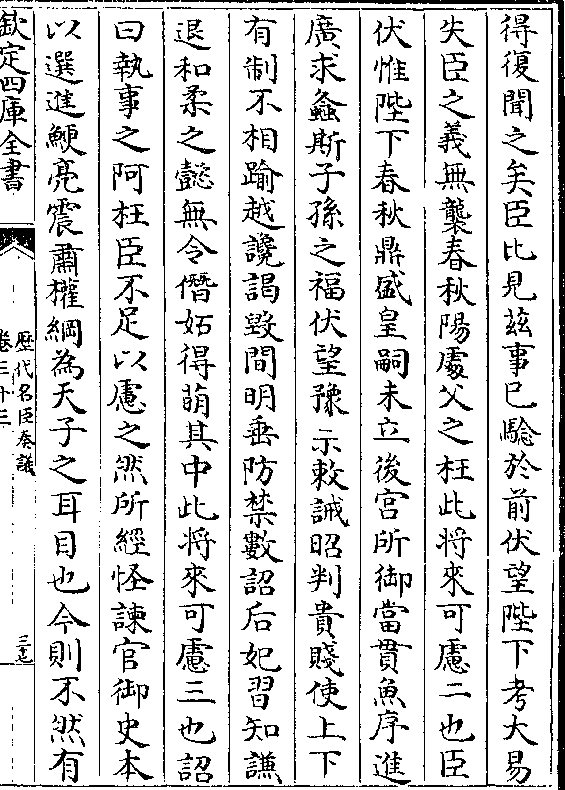 得復聞之矣臣比見茲事已驗於前伏望陛下考大易
失臣之義無襲春秋陽處父之枉此將來可慮二也臣
伏惟陛下春秋鼎盛皇嗣未立後宫所御當貫魚序進
廣求螽斯子孫之福伏望豫示敕誡昭判貴賤使上下
有制不相踰越讒謁毀間明垂防禁數詔后妃習知謙
退和柔之懿無令僭妬得萌其中此將來可慮三也詔
曰執事之阿枉臣不足以慮之然所經怪諫官御史本
以選進鯁亮震肅權綱為天子之耳目也今則不然有
欽定四庫全書
歷代名臣奏議
卷三十三
三七